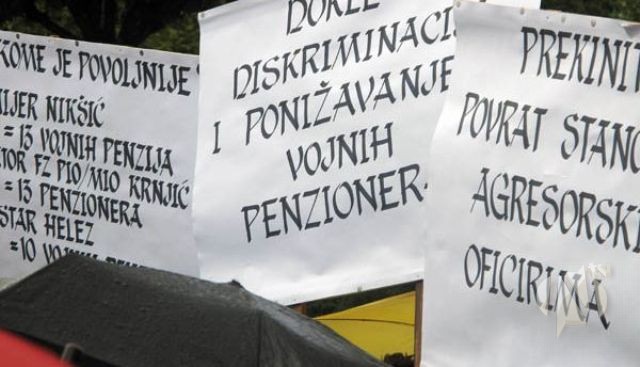 KOME JE POVOLJNIJE
NIKŠIĆ
= 13 VOJNIH PENZIJA
FZ PIO/MIO KRNJIĆ
= 13 PENZIONERA
HELEZ
=10 VOJNIH
DOKLE
DISKRIMINACI
I PONIŽAVANJE
VOJNIH
PENZIONER
PREKINI
POVRAT STANO
AGRESORSKI
OFICIRIMA